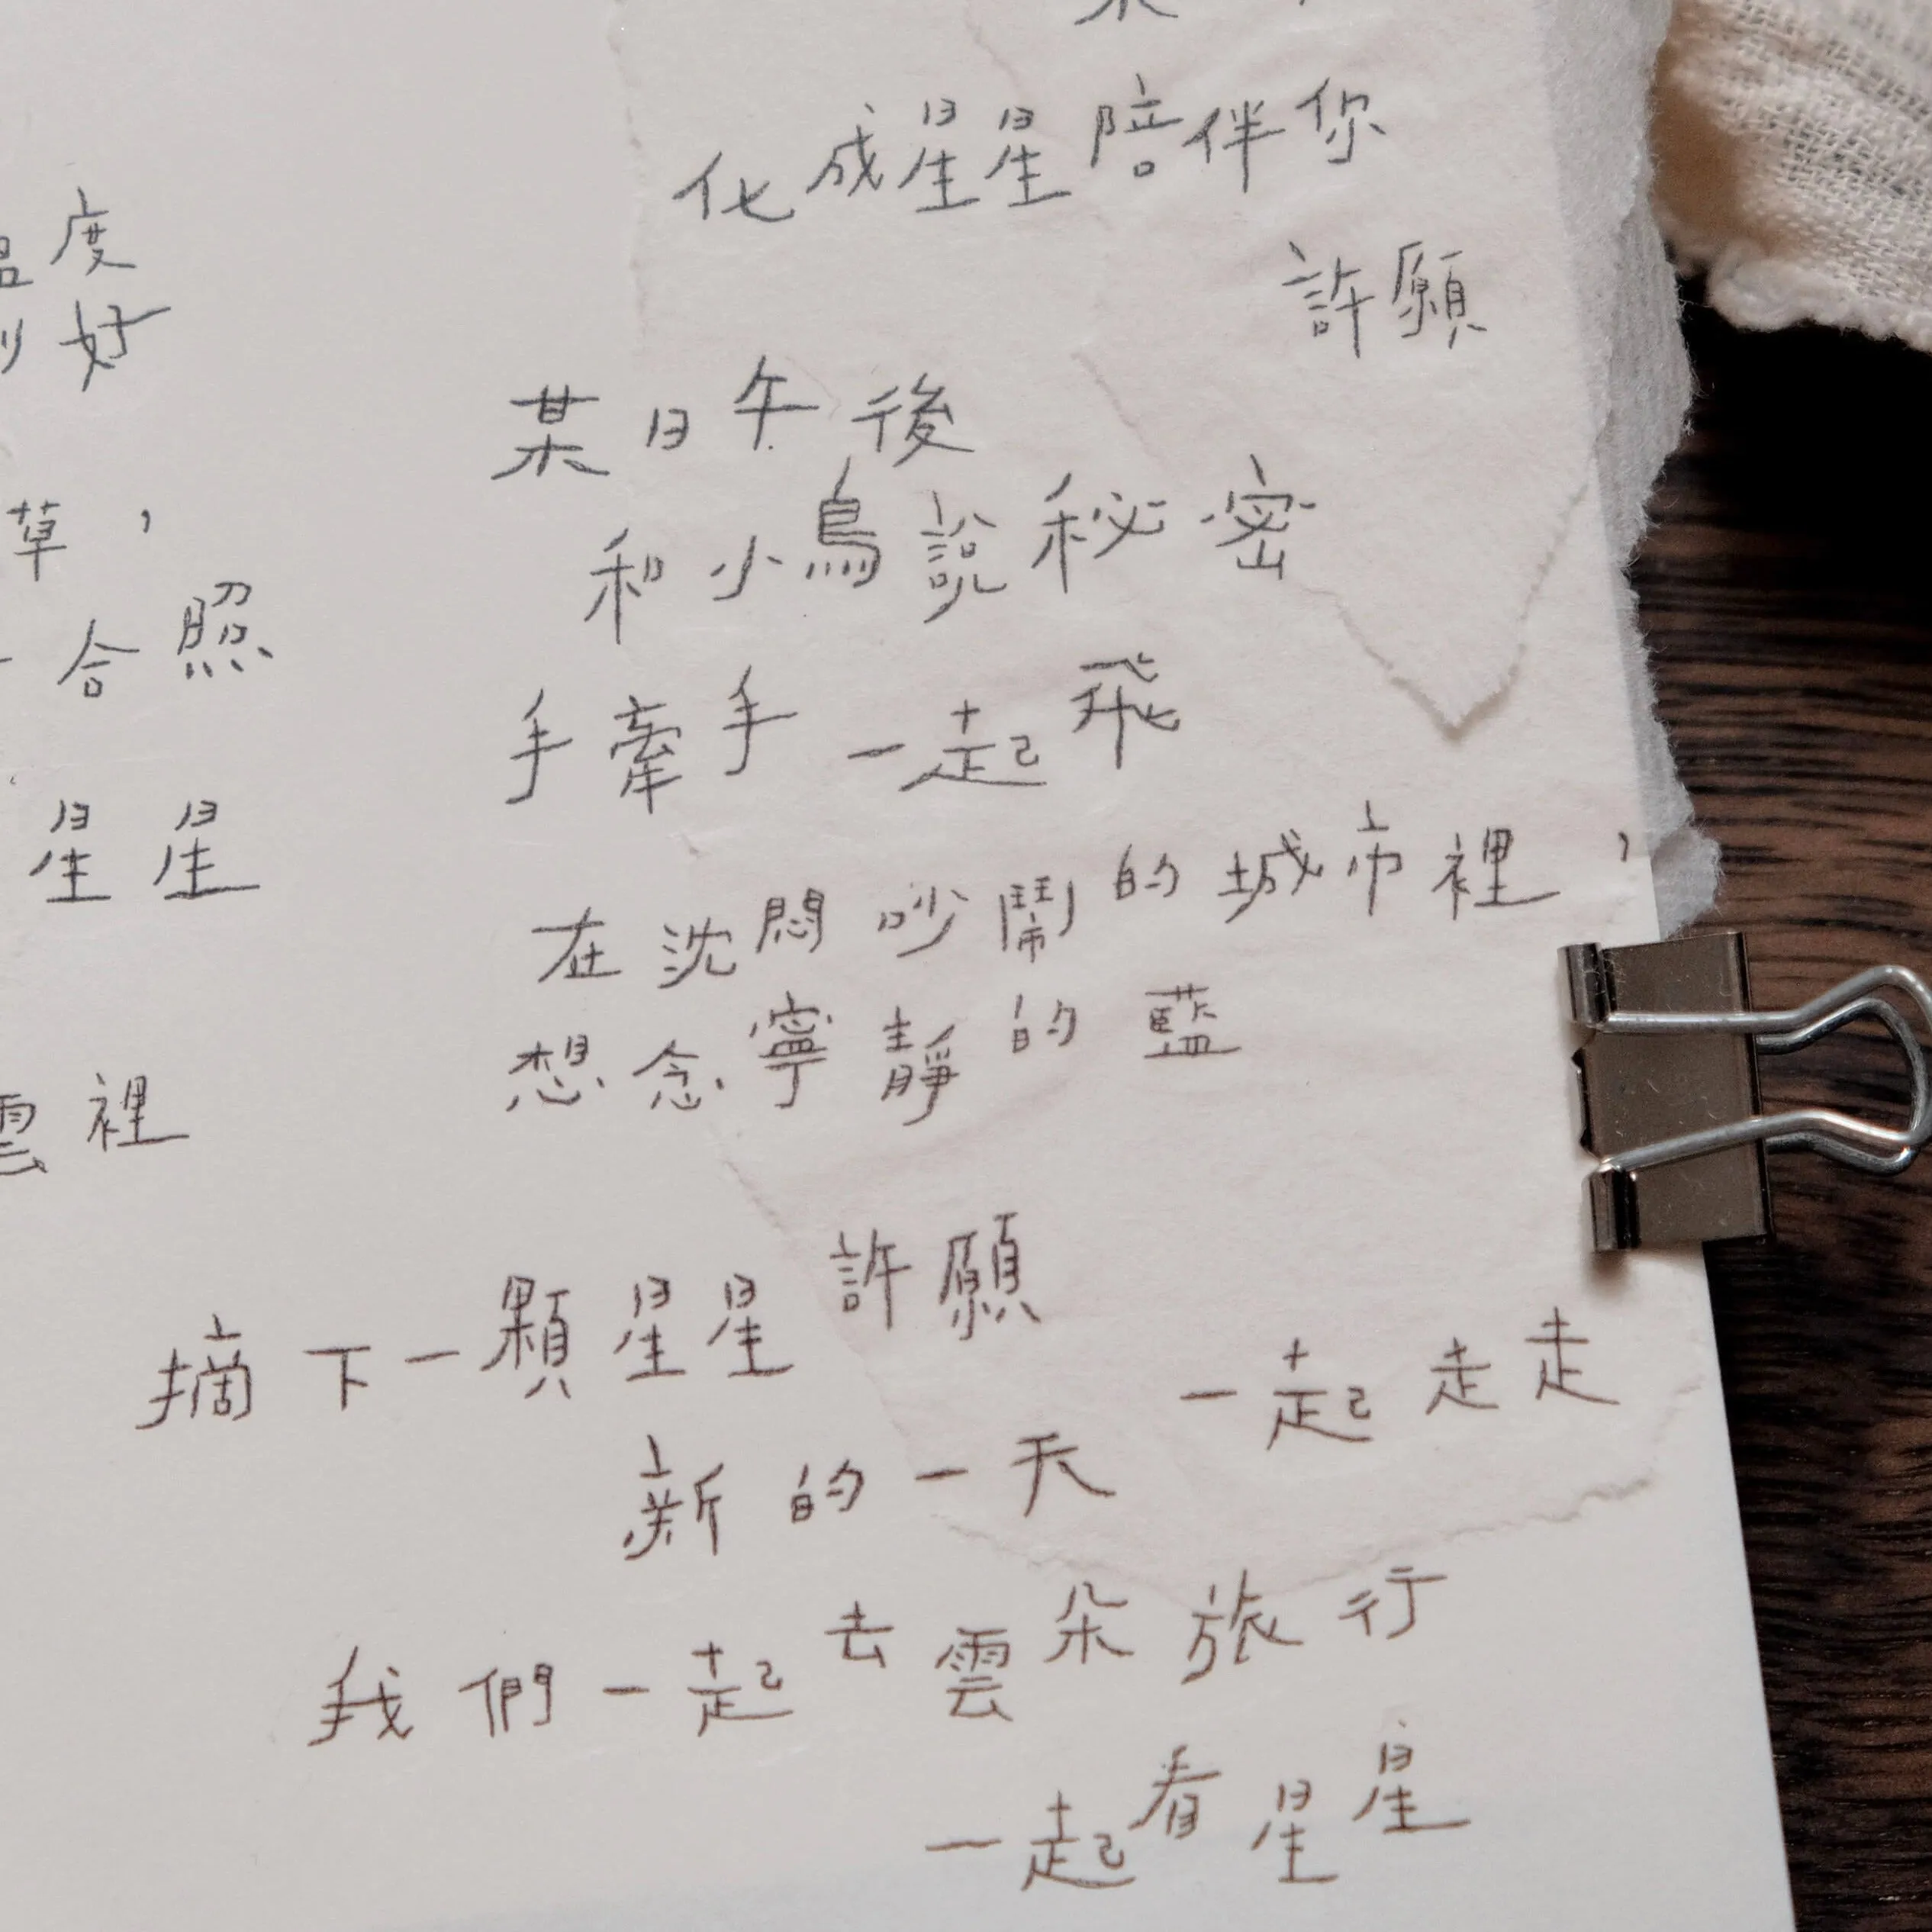 化成星星陪伴你
度
許願
好
某日午後
草,
和小鳥說秘密
合照
手牽手一起飛
星星
在沈悶吵鬧的城市裡,
想念寧靜的藍
雲裡
摘下一顆星星許願
一起走走
新的一天
我們一起去雲朵旅行
一起看星星